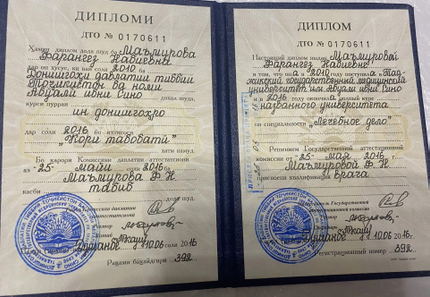 ДИПЛОМИ
ДТО № 0170611
Ҳамин диплом дода шуд ба Маъмурова
Фарангез Набиевна
дар он хусус, ки вай соли 2010 ба
Донишгоҳи давлатии тиббии
Тоҷикистон ба номи
Абӯалӣ ибни Сино
дохил шуда,
курси пурраи
ин донишгоҳро
дар соли 2016 аз ихтисоси
"Кори табобатӣ"
Бо қарори Комиссияи давлатии аттестатсионӣ
аз "25" майи соли 2016 ба
Маъмурова Ф.Н.
касби табиб
дода шуд.
Душанбе 10.06 соли 2016
Рақами бақайдгирӣ 392
ДИПЛОМ
ДТО № 0170611
Настоящий диплом выдан Маъмуровой
Фарангез Набиевне
в том, что она в 2010 году поступила в Тад-
жикский государственный медицинский
университет им. Абуали ибни Сино
и в 2016 году окончила полный курс
названного университета
по специальности "Лечебное дело"
Решением Государственной аттестационной
комиссии от "25" мая 2016 г.
Маъмуровой Ф.Н.
присвоена квалификация врача
Душанбе 10.06 2016
Регистрационный номер 392